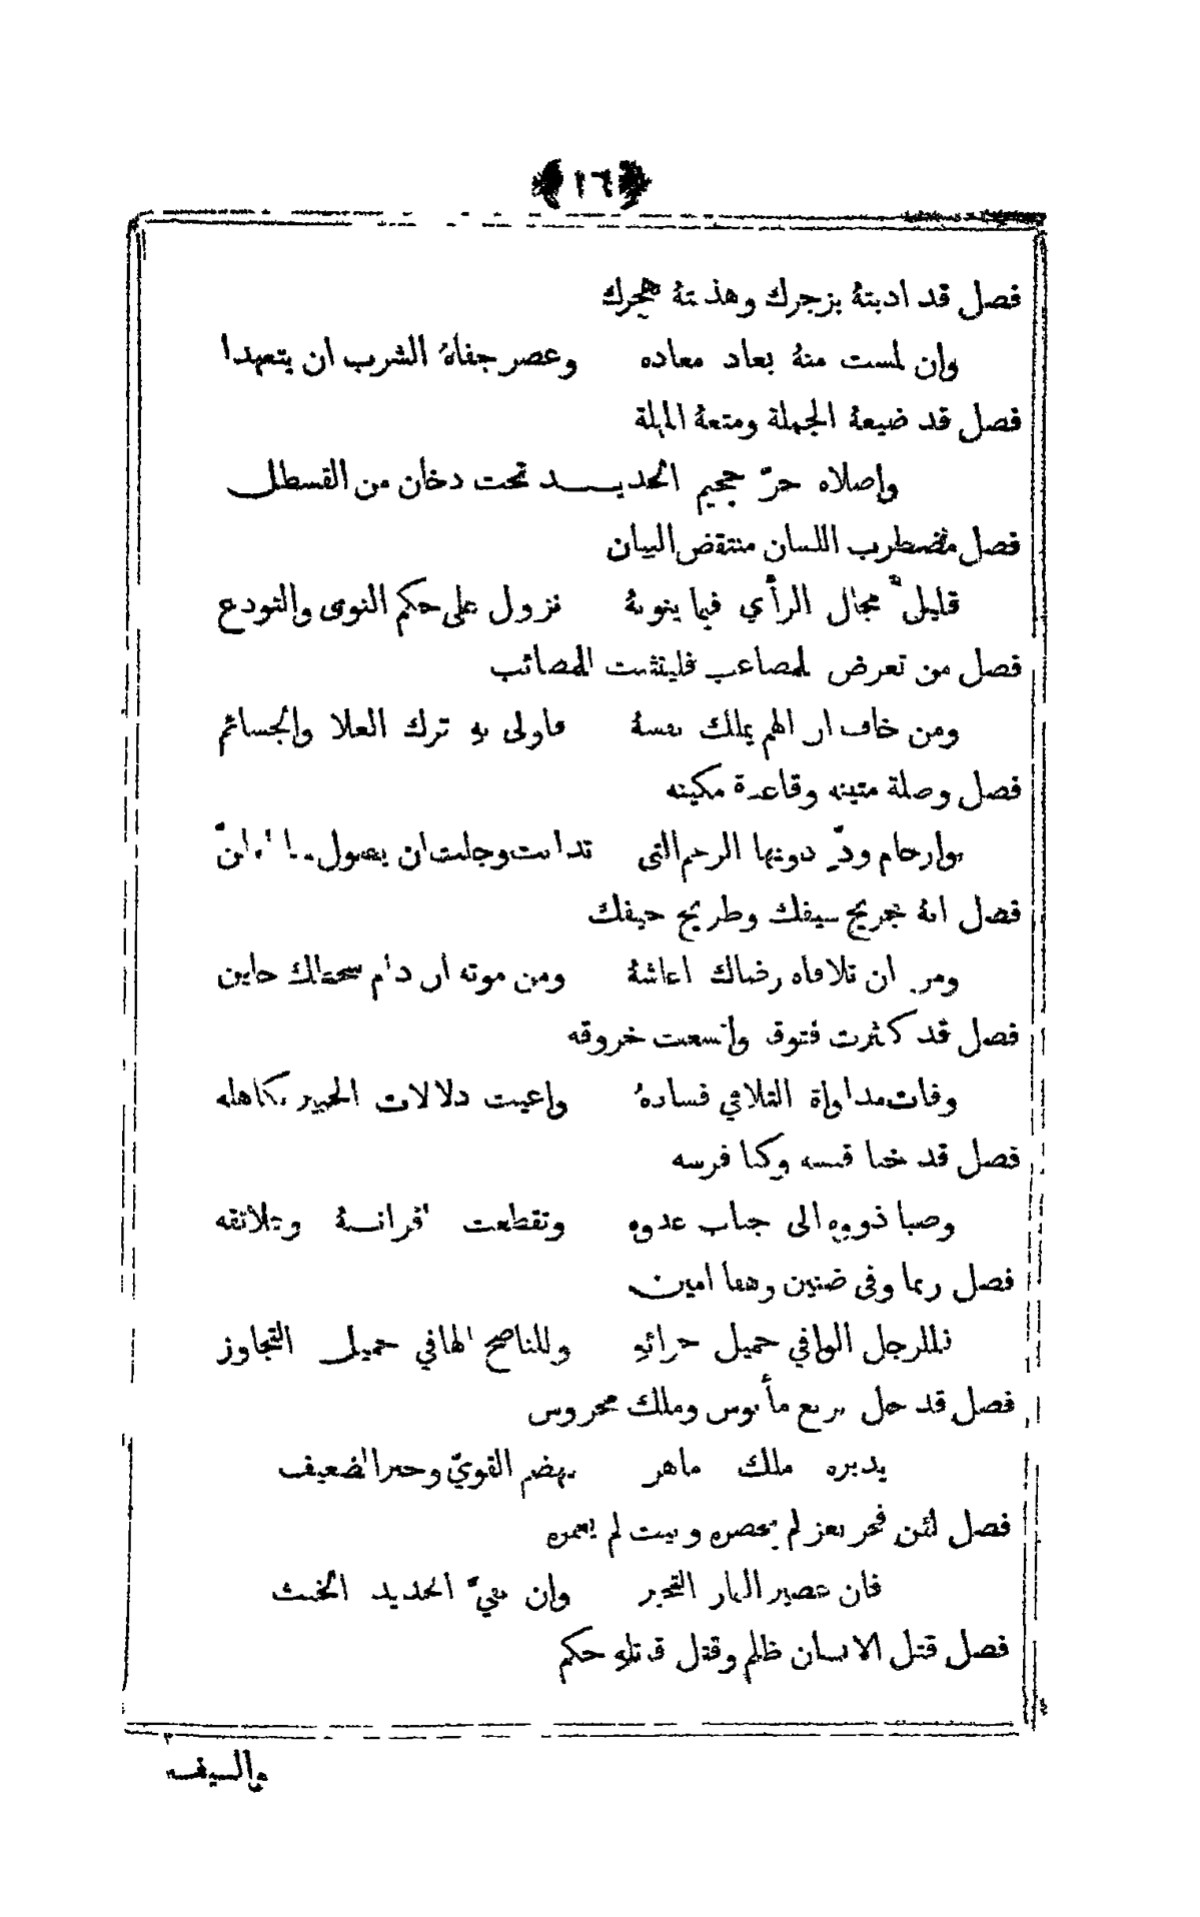 ﴿١٦﴾
فصل قد ادبتهُ بزجرك وهذبتهُ بهجرك
وان لست منهُ بعاد معاده وعصر جفاهُ الشرب ان يتعهدا
فصل قد ضيعهُ الجملة ومتعهُ المهلة
واصلاه حرّ جحيم الحديـــد تحت دخان من القسطل
فصل مضطرب اللسان منتقض البيان
قليلٌ مجال الرأي فيما ينوبهُ نزول على حكم النوى والتودع
فصل من تعرض للمصاعب فليثبت للمصائب
ومن خاف ان الهم يملك نفسهُ فاولى به ترك العلا والجسائم
فصل وصلة متينه وقاعدة مكينه
وارحام ودّ دونها الرحم التي تدانت وجلت ان يصول
فصل انهُ جريح سيفك وطريح حيفك
ومن ان تلافاه رضاك اعاشهُ ومن موته ان دام سخطك حاين
فصل قد كثرت فتوقه واتسعت خروقه
وفات مداواة التلافي فسادهُ واعيت دلالات الخبير بكاهله
فصل قد خبا قبسه وكبا فرسه
وصبا ذووه الى جناب عدوه وتقطعت اقرانـهُ وعلائقه
فصل ربما وفى ضنين وهفا امين
فللرجل الوافي جميل جزائه وللناصح الهافي جميل التجاوز
فصل قد حل بربع مأنوس وملك محروس
يدبره ملك ماهر بهضم القويّ وجبر الضعيف
فصل لئن فخر بعز لم يحصره وبيت لم يعمره
فان عصير النار التحير وان بنيّ الحديد الخبث
فصل قتل الانسان ظلم وقتل قاتله حكم
والسيف